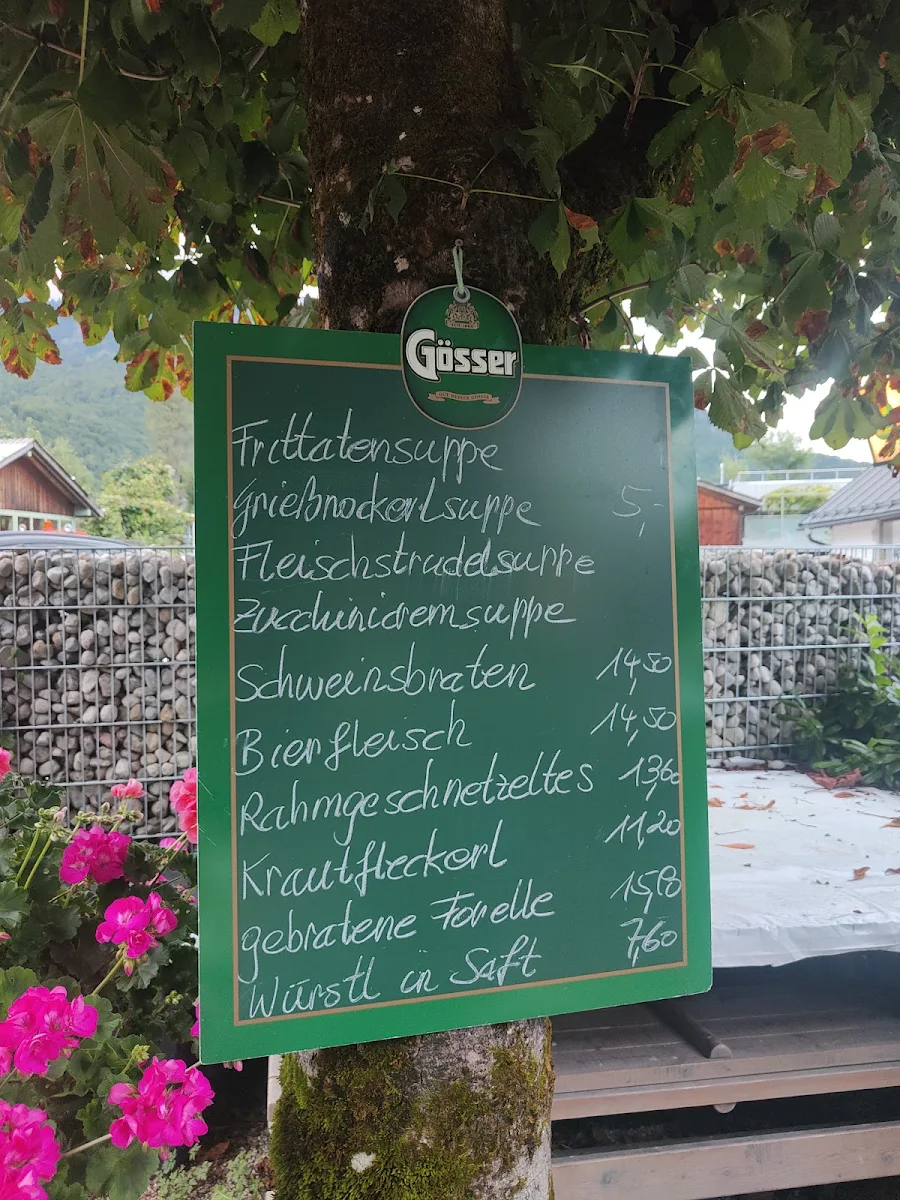 Gösser
GUT. BESSER. GÖSSER.
Frittatensuppe
Grießnockerlsuppe 5,-
Fleischstrudelsuppe
Zucchinicremsuppe
Schweinsbraten 14,50
Bierfleisch 14,50
Rahmgeschnetzeltes 13,60
Krautfleckerl 11,20
gebratene Forelle
Würstl in Saft 7,60